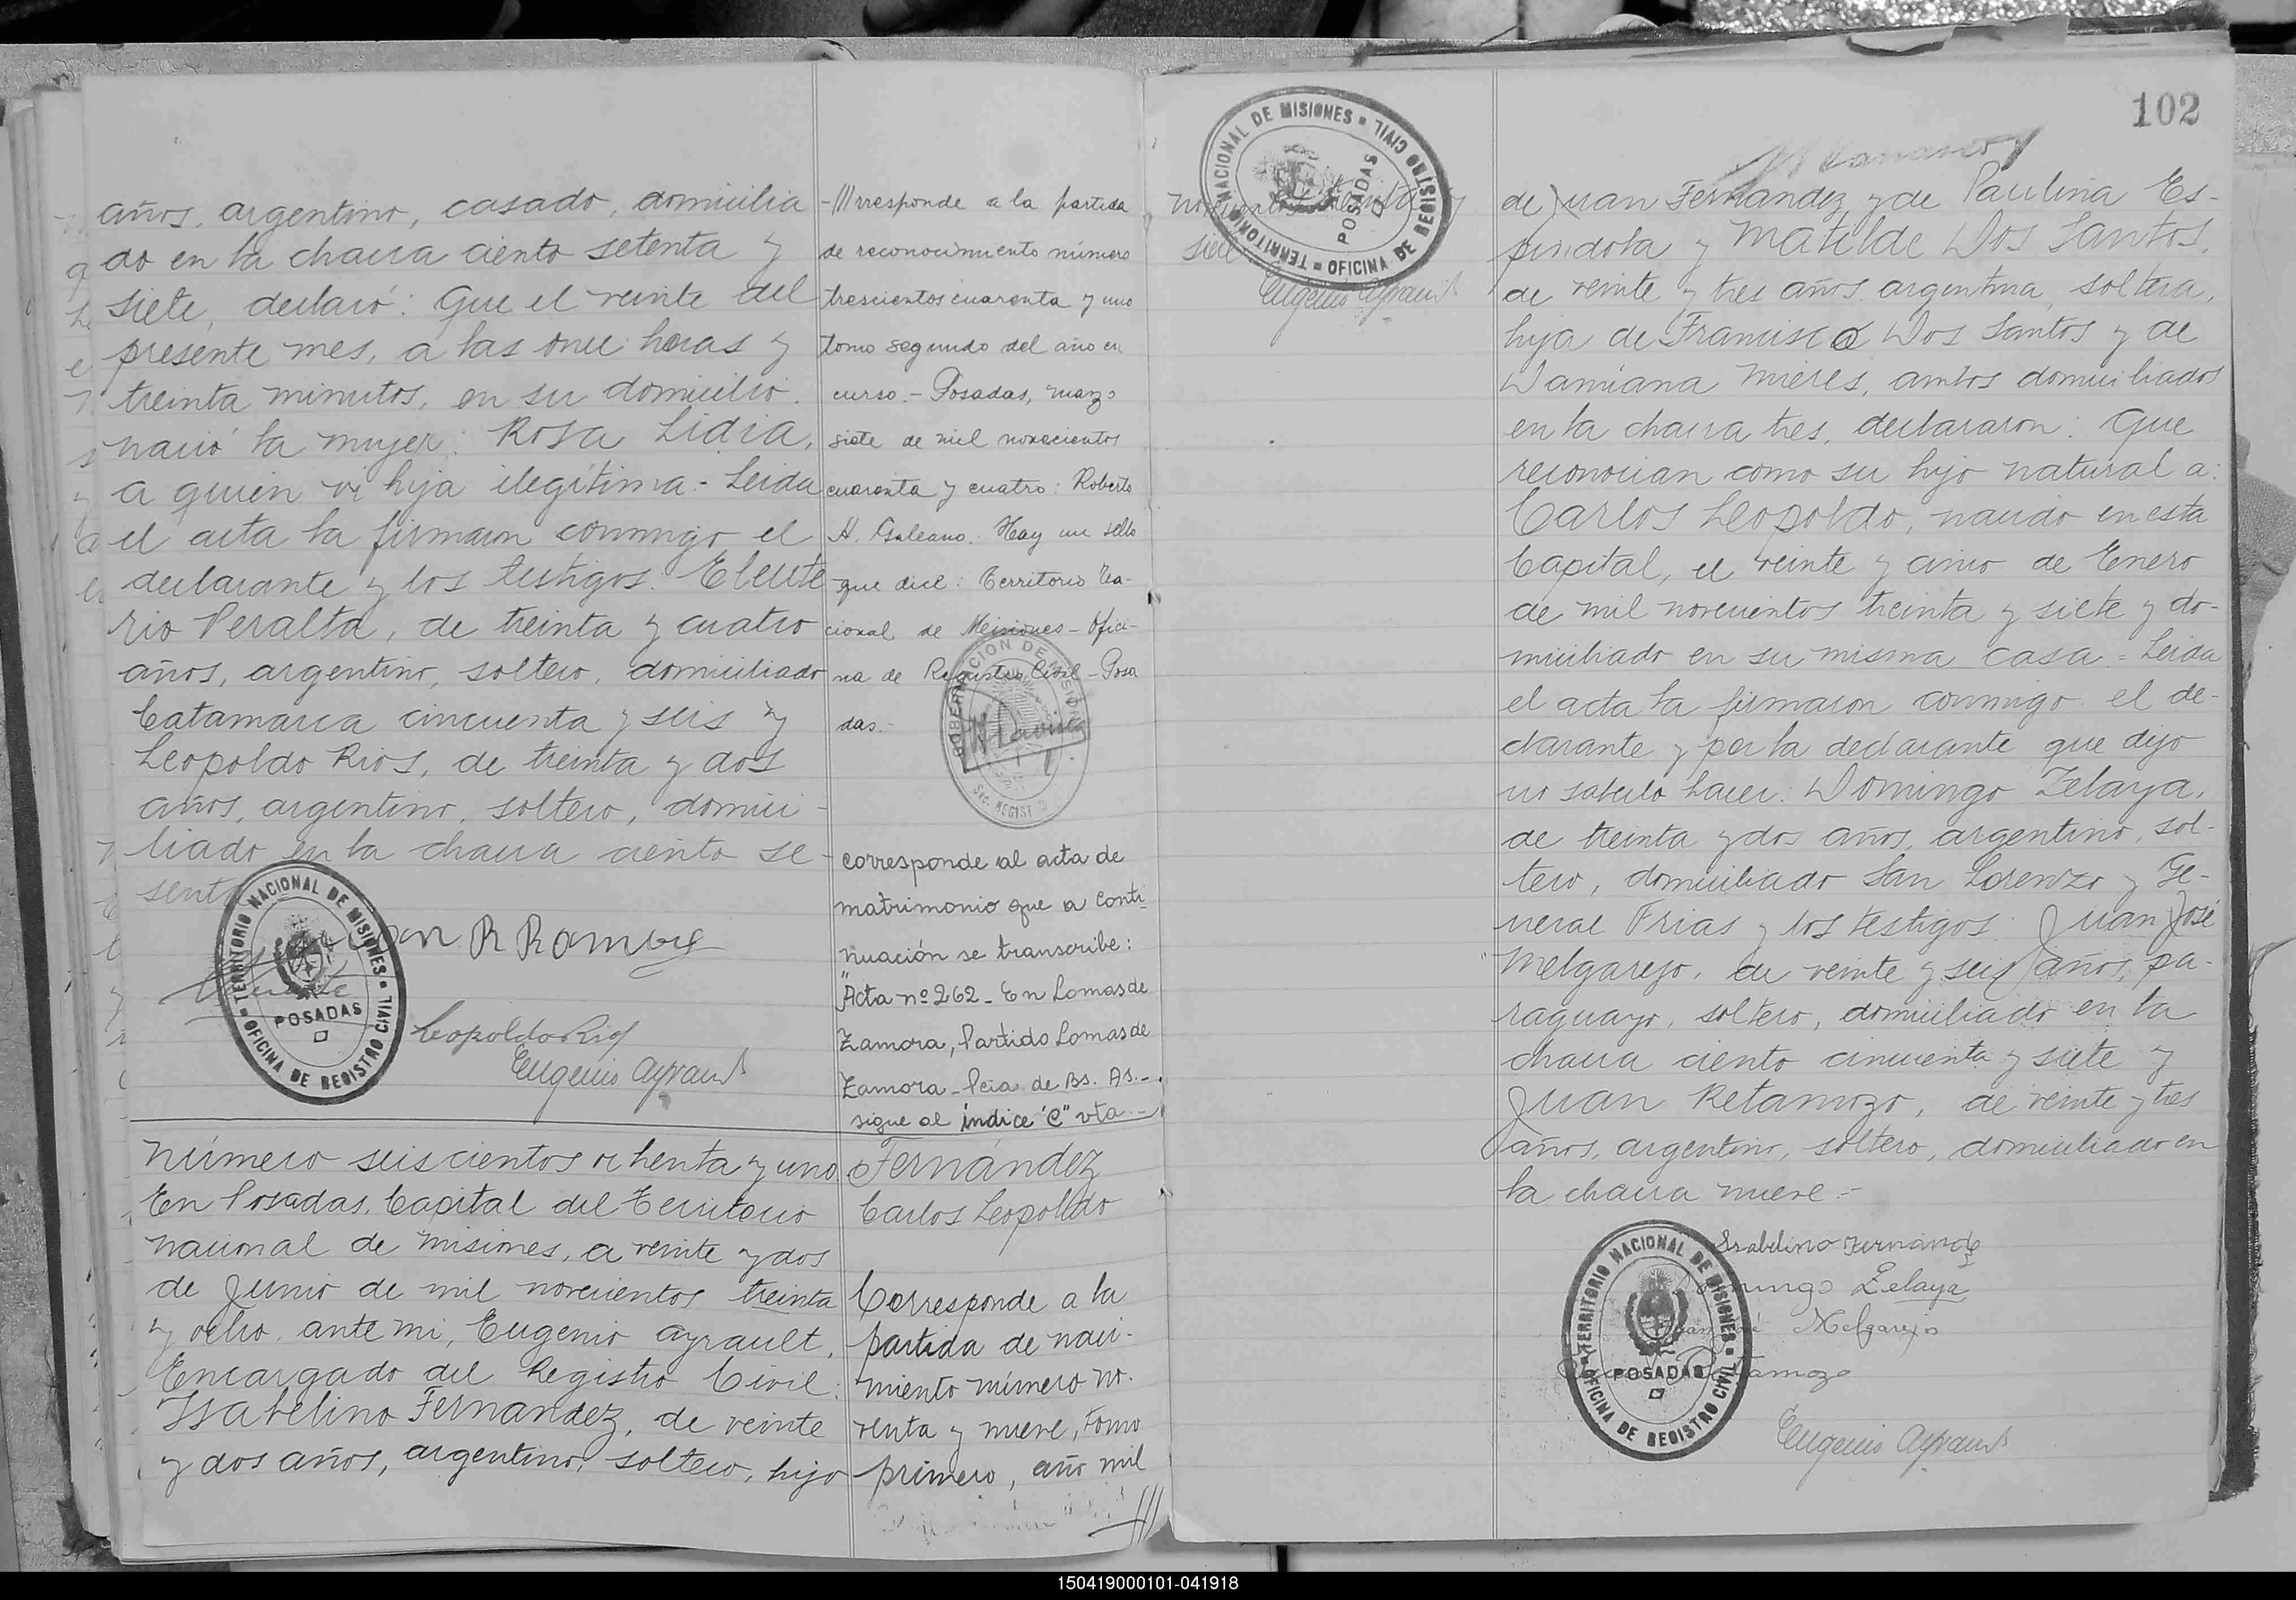 años, argentino, casado, domicilia
do en la chacra ciento setenta y
siete, declaró: Que el veinte del
presente mes, a las once horas y
treinta minutos, en su domicilio.
nació la mujer: Rosa Lidia,
a quien vi hija ilegítima.- Leida
el acta la firmaron conmigo el
declarante y los testigos: Eleute
rio Peralta, de treinta y cuatro
años, argentino, soltero, domiciliado
Catamarca cincuenta y seis y
Leopoldo Rios, de treinta y dos
años, argentino, soltero, domici-
liado en la chacra ciento se-
senta
TERRITORIO NACIONAL DE MISIONES
OFICINA DE REGISTRO CIVIL
POSADAS
Leopoldo Rios
Eugenio Ayrault
-///rresponde a la partida
de reconocimiento número
trescientos cuarenta y uno
tomo segundo del año en
curso.- Posadas, marzo
siete de mil novecientos
cuarenta y cuatro: Roberto
A. Galeano. Hay un sello
que dice: Territorio Na-
cional de Misiones - Ofici-
na de Registro Civil - Posa
das.-
GOBERNACION DE MISIONES
Sec. REGISTRO
corresponde al acta de
matrimonio que a conti-
nuación se transcribe:
"Acta nº 262 - En Lomas de
Zamora, Partido Lomas de
Zamora - Pcia. de Bs. As.-
sigue al índice "C" vta -
Número seiscientos ochenta y uno
En Posadas, Capital del Territorio
nacional de Misiones, a veinte y dos
de Junio de mil novecientos treinta
y ocho, ante mi, Eugenio Ayrault,
Encargado del Registro Civil:
Isabelino Fernandez, de veinte
y dos años, argentino, soltero, hijo
Fernández
Carlos Leopoldo
Corresponde a la
partida de naci-
miento número no-
venta y nueve, tomo
primero, año mil
///
102
TERRITORIO NACIONAL DE MISIONES
OFICINA DE REGISTRO CIVIL
POSADAS
novecientos treinta y
siete
Eugenio Ayrault
de Juan Fernandez y de Paulina Es-
pindola y Matilde Dos Santos,
de veinte y tres años, argentina, soltera,
hija de Francisco Dos Santos y de
Damiana Mieres, ambos domiciliados
en la chacra tres, declararon: Que
reconocian como su hijo natural a:
Carlos Leopoldo, nacido en esta
Capital, el veinte y cinco de Enero
de mil novecientos treinta y siete y do-
miciliado en su misma casa = Leida
el acta la firmaron conmigo el de-
clarante y por la declarante que dijo
no saberlo hacer: Domingo Zelaya,
de treinta y dos años, argentino, sol-
tero, domiciliado San Lorenzo y Ge-
neral Frias y los testigos: Juan José
Melgarejo, de veinte y seis años, pa-
raguayo, soltero, domiciliado en la
chacra ciento cincuenta y siete y
Juan Retamozo, de veinte y tres
años, argentino, soltero, domiciliado en
la chacra nueve.-
TERRITORIO NACIONAL DE MISIONES
OFICINA DE REGISTRO CIVIL
POSADAS
Isabelino Fernandez
Domingo Zelaya
Juan José Melgarejo
Juan Retamozo
Eugenio Ayrault
150419000101-041918